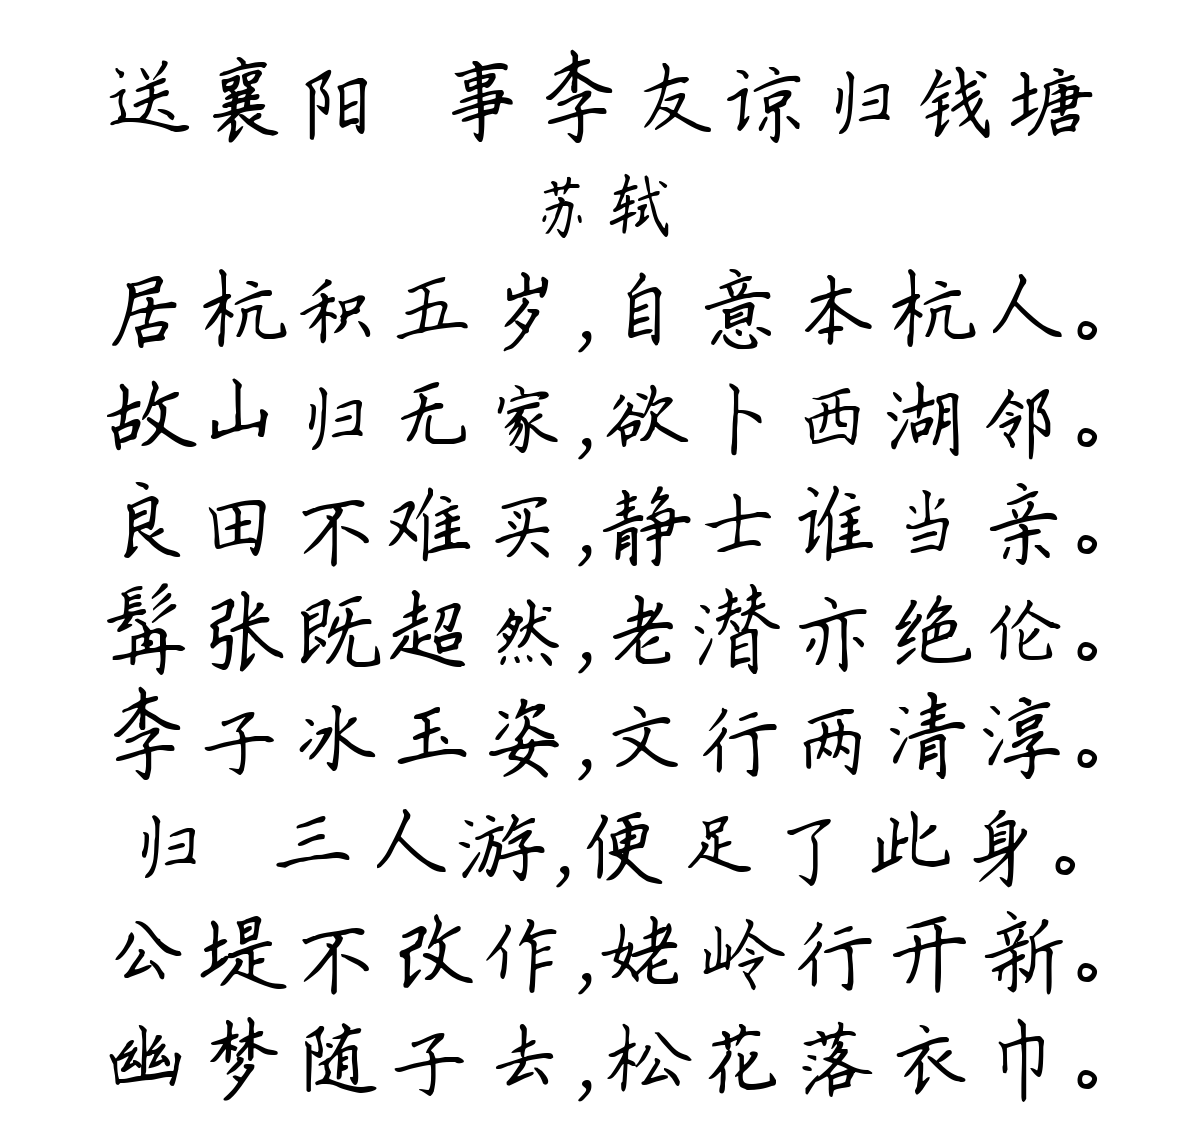 送襄阳 事李友谅归钱塘
苏轼
居杭积五岁,自意本杭人。
故山归无家,欲卜西湖邻。
良田不难买,静士谁当亲。
髯张既超然,老潜亦绝伦。
李子冰玉姿,文行两清淳。
归 三人游,便足了此身。
公堤不改作,姥岭行开新。
幽梦随子去,松花落衣巾。